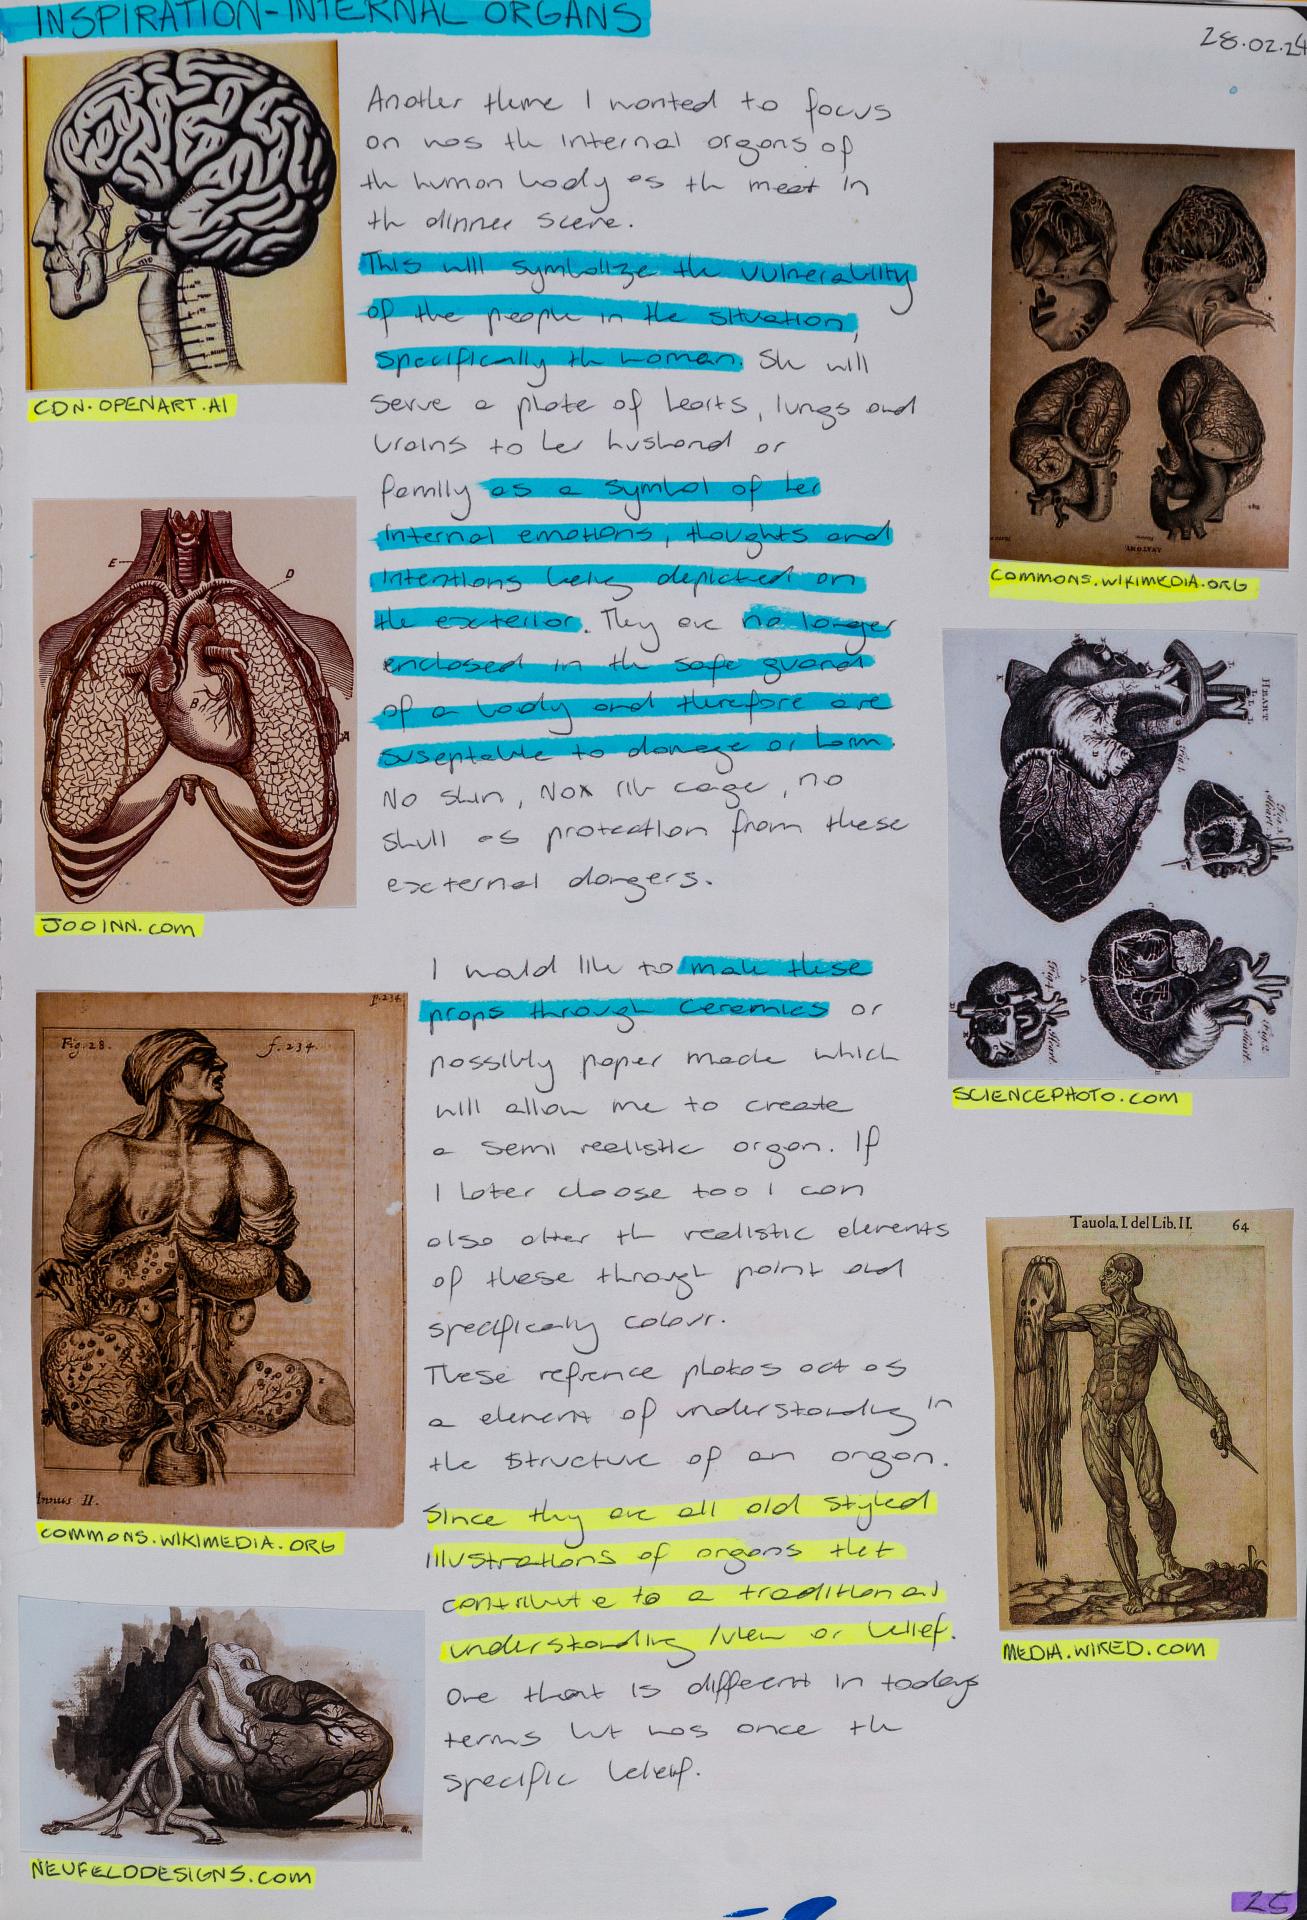 INSPIRATION-INTERNAL ORGANS
28.02.24
Another theme I wanted to focus
on was the internal organs of
the human body as the meat in
the dinner scene.
This will symbolize the vulnerability
of the people in the situation,
specifically the woman. She will
serve a plate of hearts, lungs and
brains to her husband or
family as a symbol of her
internal emotions, thoughts and
intentions being depicted on
the exterior. They are no longer
enclosed in the safe guard
of a body and therefore are
suseptable to damage or harm.
No skin, No rib cage, no
skull as protection from these
external dangers.
I would like to make these
props through ceramics or
possibly paper mache which
will allow me to create
a semi realistic organ. If
I later choose too I can
also alter the realistic elements
of these through paint and
specifically colour.
These refrence photos act as
a element of understanding in
the structure of an organ.
Since they are all old styled
illustrations of organs that
contribute to a traditional
understanding /view or belief.
One that is different in todays
terms but was once the
specific belief.
CDN.OPENART.AI
E
D
B
A
JOOINN.com
p.234
Fig.28.
f.234.
Annus II.
COMMONS.WIKIMEDIA.ORG
NEUFELDDESIGNS.COM
COMMONS.WIKIMEDIA.ORG
HEART
Fig.1.
Fig.3.
Heart.
Fig.2
Heart.
Fig.4
Heart.
SCIENCEPHOTO.COM
Tauola. I. del Lib. II. 64
MEDIA.WIRED.COM
25